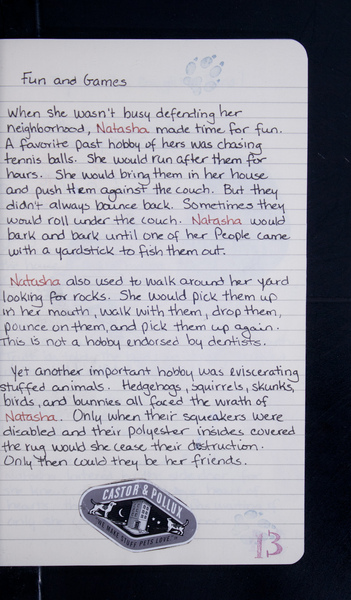 Fun and Games
When she wasn't busy defending her
neighborhood, Natasha made time for fun.
A favorite past hobby of hers was chasing
tennis balls. She would run after them for
hours. She would bring them in her house
and push them against the couch. But they
didn't always bounce back. Sometimes they
would roll under the couch. Natasha would
bark and bark until one of her People came
with a yardstick to fish them out.
Natasha also used to walk around her yard
looking for rocks. She would pick them up
in her mouth, walk with them, drop them,
pounce on them, and pick them up again.
This is not a hobby endorsed by dentists.
Yet another important hobby was eviscerating
stuffed animals. Hedgehogs, squirrels, skunks,
birds, and bunnies all faced the wrath of
Natasha. Only when their squeakers were
disabled and their polyester insides covered
the rug would she cease their destruction.
Only then could they be her friends.
CASTOR & POLLUX
WE MAKE STUFF PETS LOVE
13